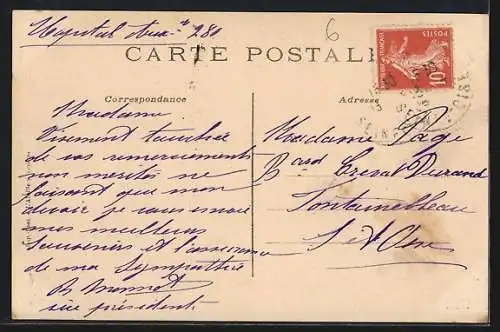 Hopital Aux.re 280
6
CARTE POSTALE
POSTES
10
Correspondance
Adresse
Madame
Vivement touchée
de vos remerciements
non mérités ne
faisant que mon
devoir je vous envoie
mes meilleurs
souvenirs et l'assurance
de ma sympathie
vice président
Madame Page
Bard
Fontainebleau
S et M